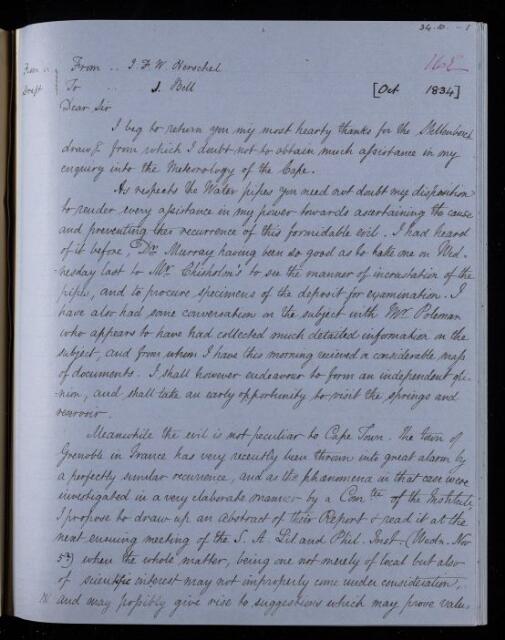 34.10. - 1
From a
Draft
From .. J. F. W. Herschel
To .. J. Bell
[Oct 1834]
Dear Sir
I beg to return you my most hearty thanks for the Stellenbosch
from which I doubt not to obtain much assistance in my
enquiry into the Meteorology of the Cape.
As respects the Water pipes you need not doubt my disposition
to render every assistance in my power towards ascertaining the cause
and preventing the recurrence of this formidable evil. I had heard
of it before, Dr. Murray having been so good as to take me on Wed-
nesday last to Mr. Chisholm's to see the manner of incrustation of the
pipes, and to procure specimens of the deposit for examination. I
have also had some conversation on the subject with Mr. Poleman
who appears to have had collected much detailed information on the
subject, and from whom I have this morning recieved a considerable mass
of documents. I shall however endeavour to form an independent opi-
nion, and shall take an early opportunity to visit the springs and
reservoir.
Meanwhile the evil is not peculiar to Cape Town. The town of
Grenoble in France has very recently been thrown into great alarm by
a perfectly similar recurrence, and as the phænomena in that case were
investigated in a very elaborate manner by a Comtee of the Institute,
I propose to draw up an abstract of their Report & read it at the
next ensuing meeting of the S. A. Lit and Phil. Inst. (Wedn. Nov
5th) when the whole matter, being one not merely of local but also
of scientific interest may not improperly come under consideration,
and may possibly give rise to suggestions which may prove valu-